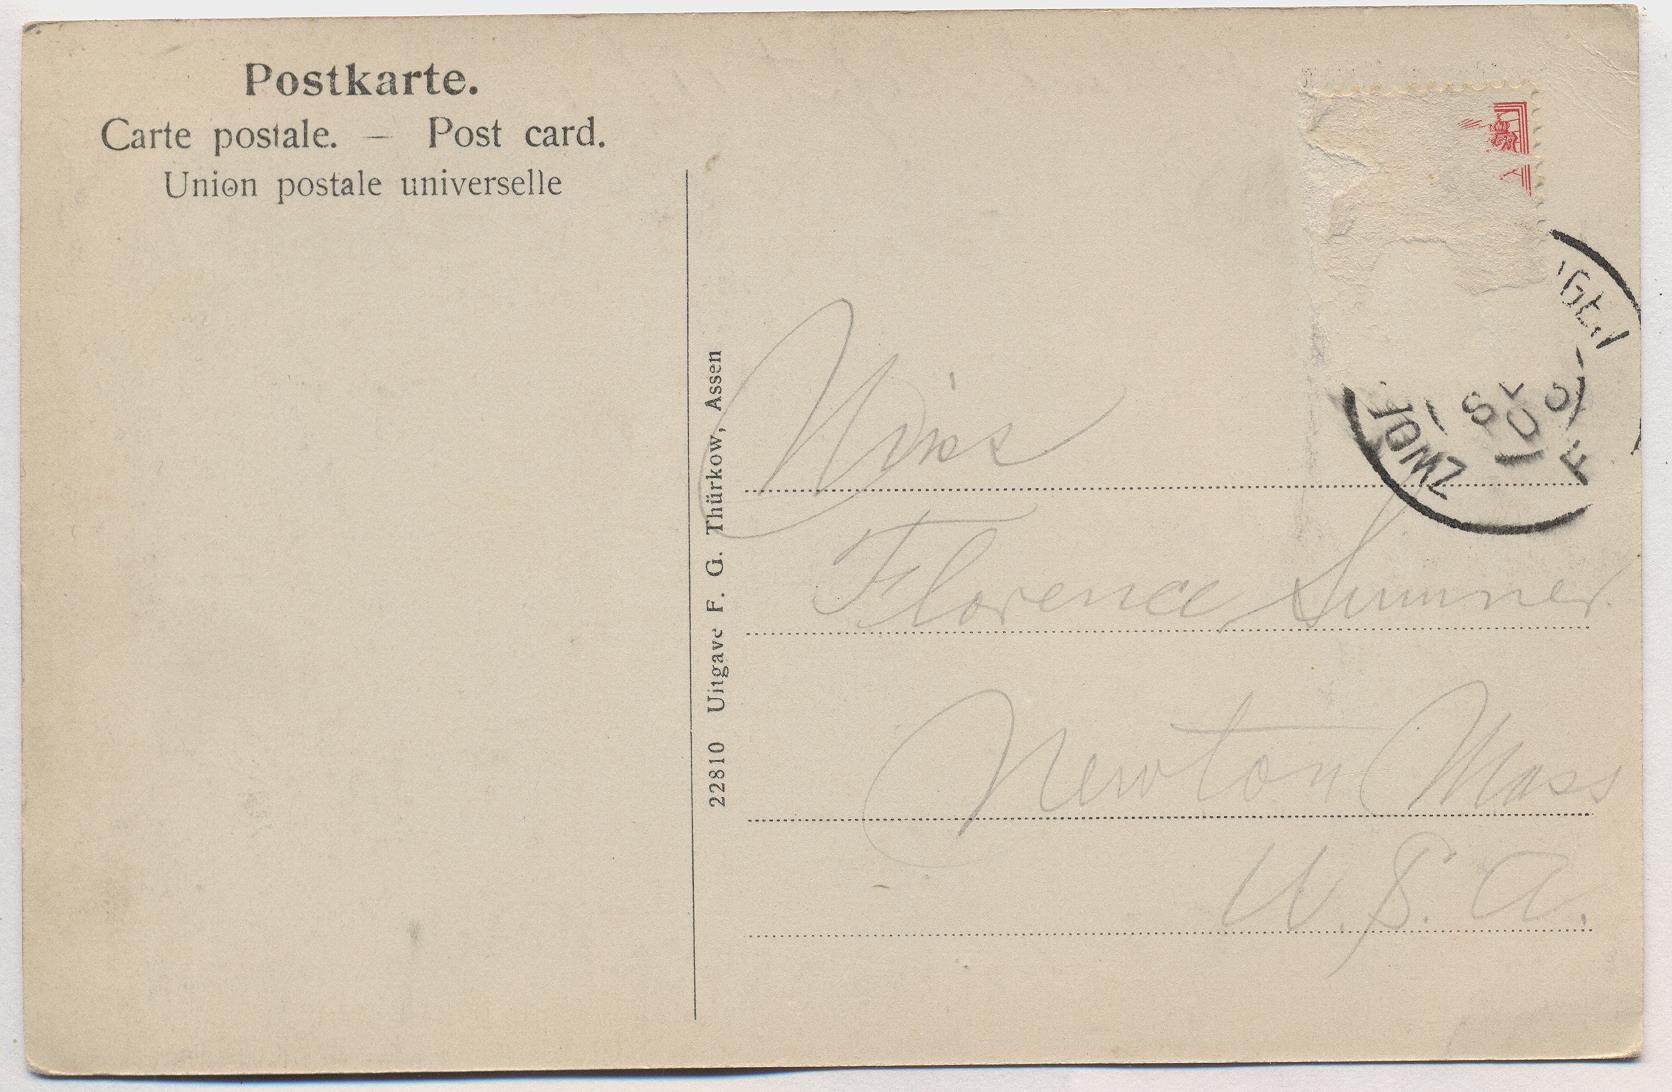 Postkarte.
Carte postale. — Post card.
Union postale universelle
22810 Uitgave F. G. Thürkow, Assen
Miss
Florence Sumner.
Newton Mass
U. S. A.